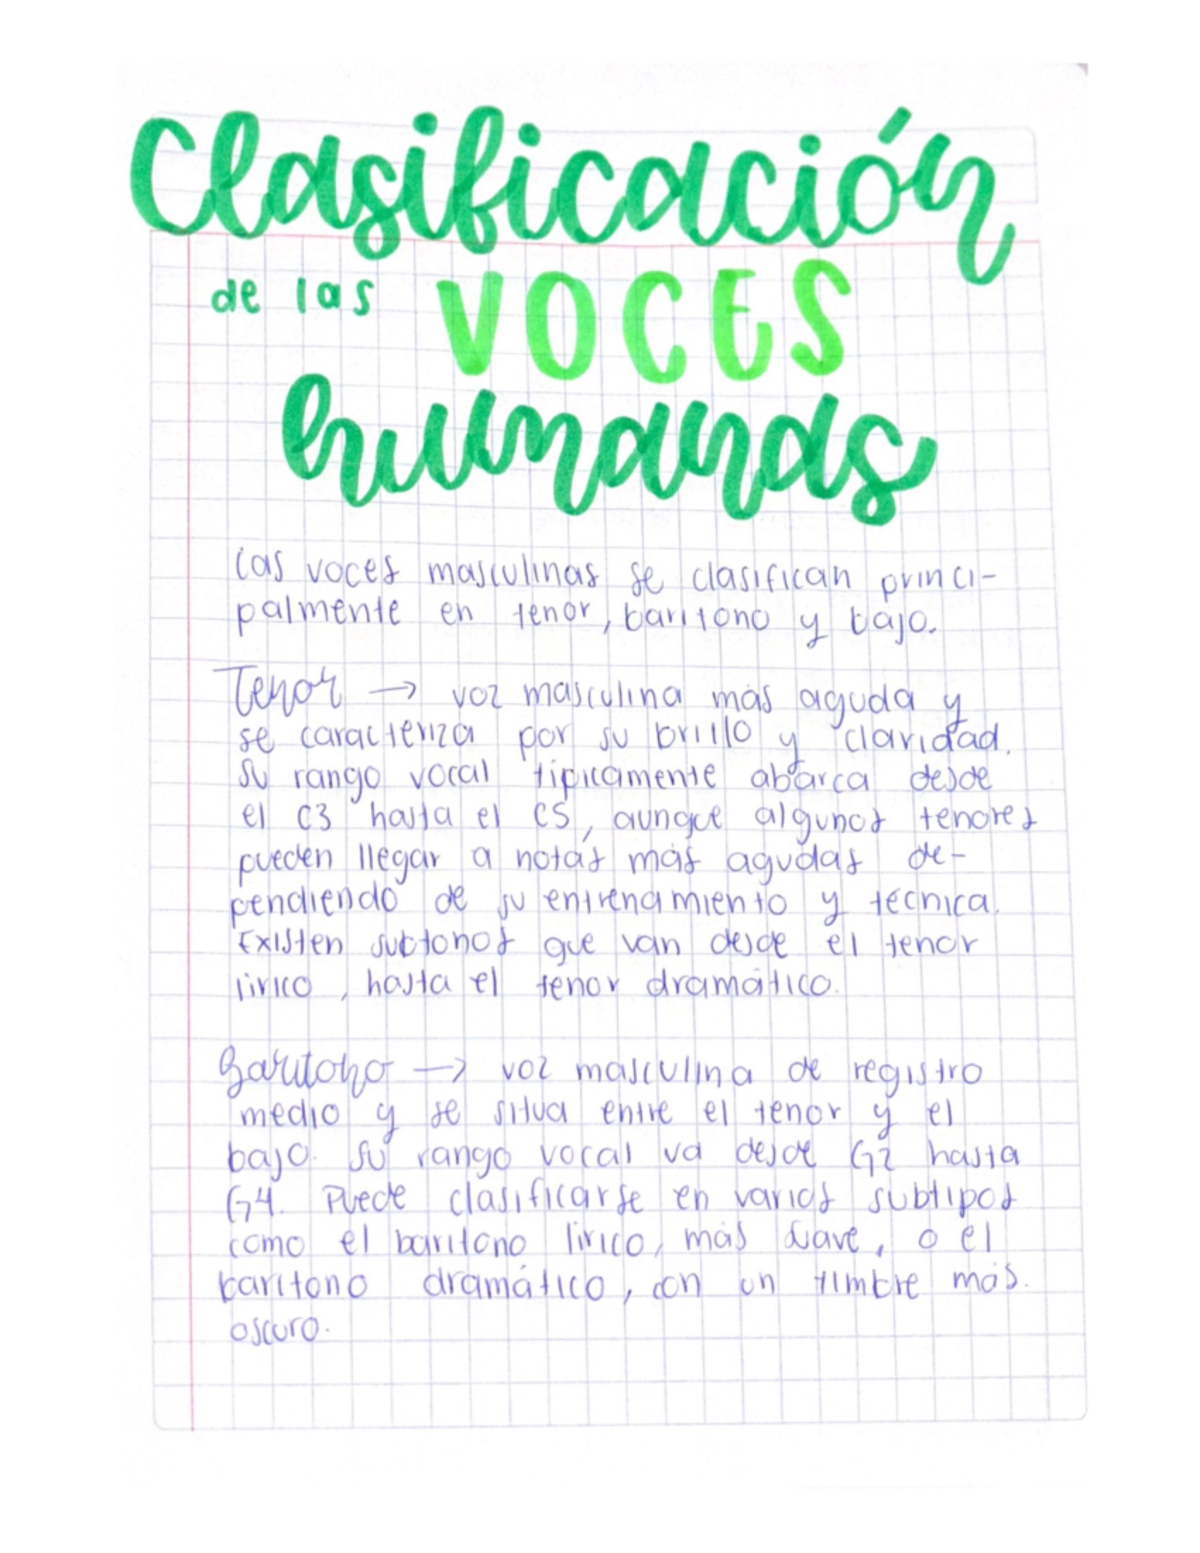 Clasificación
de las VOCES
humanas
Las voces masculinas se clasifican princi-
palmente en tenor, barítono y bajo.
Tenor → voz masculina más aguda y
se caracteriza por su brillo y claridad.
Su rango vocal típicamente abarca desde
el C3 hasta el C5, aunque algunos tenores
pueden llegar a notas más agudas de-
pendiendo de su entrenamiento y técnica.
Existen subtonos que van desde el tenor
lírico, hasta el tenor dramático.
Barítono → voz masculina de registro
medio y se situa entre el tenor y el
bajo. Su rango vocal va desde G2 hasta
G4. Puede clasificarse en varios subtipos
como el barítono lírico, más suave, o el
barítono dramático, con un timbre más.
oscuro.